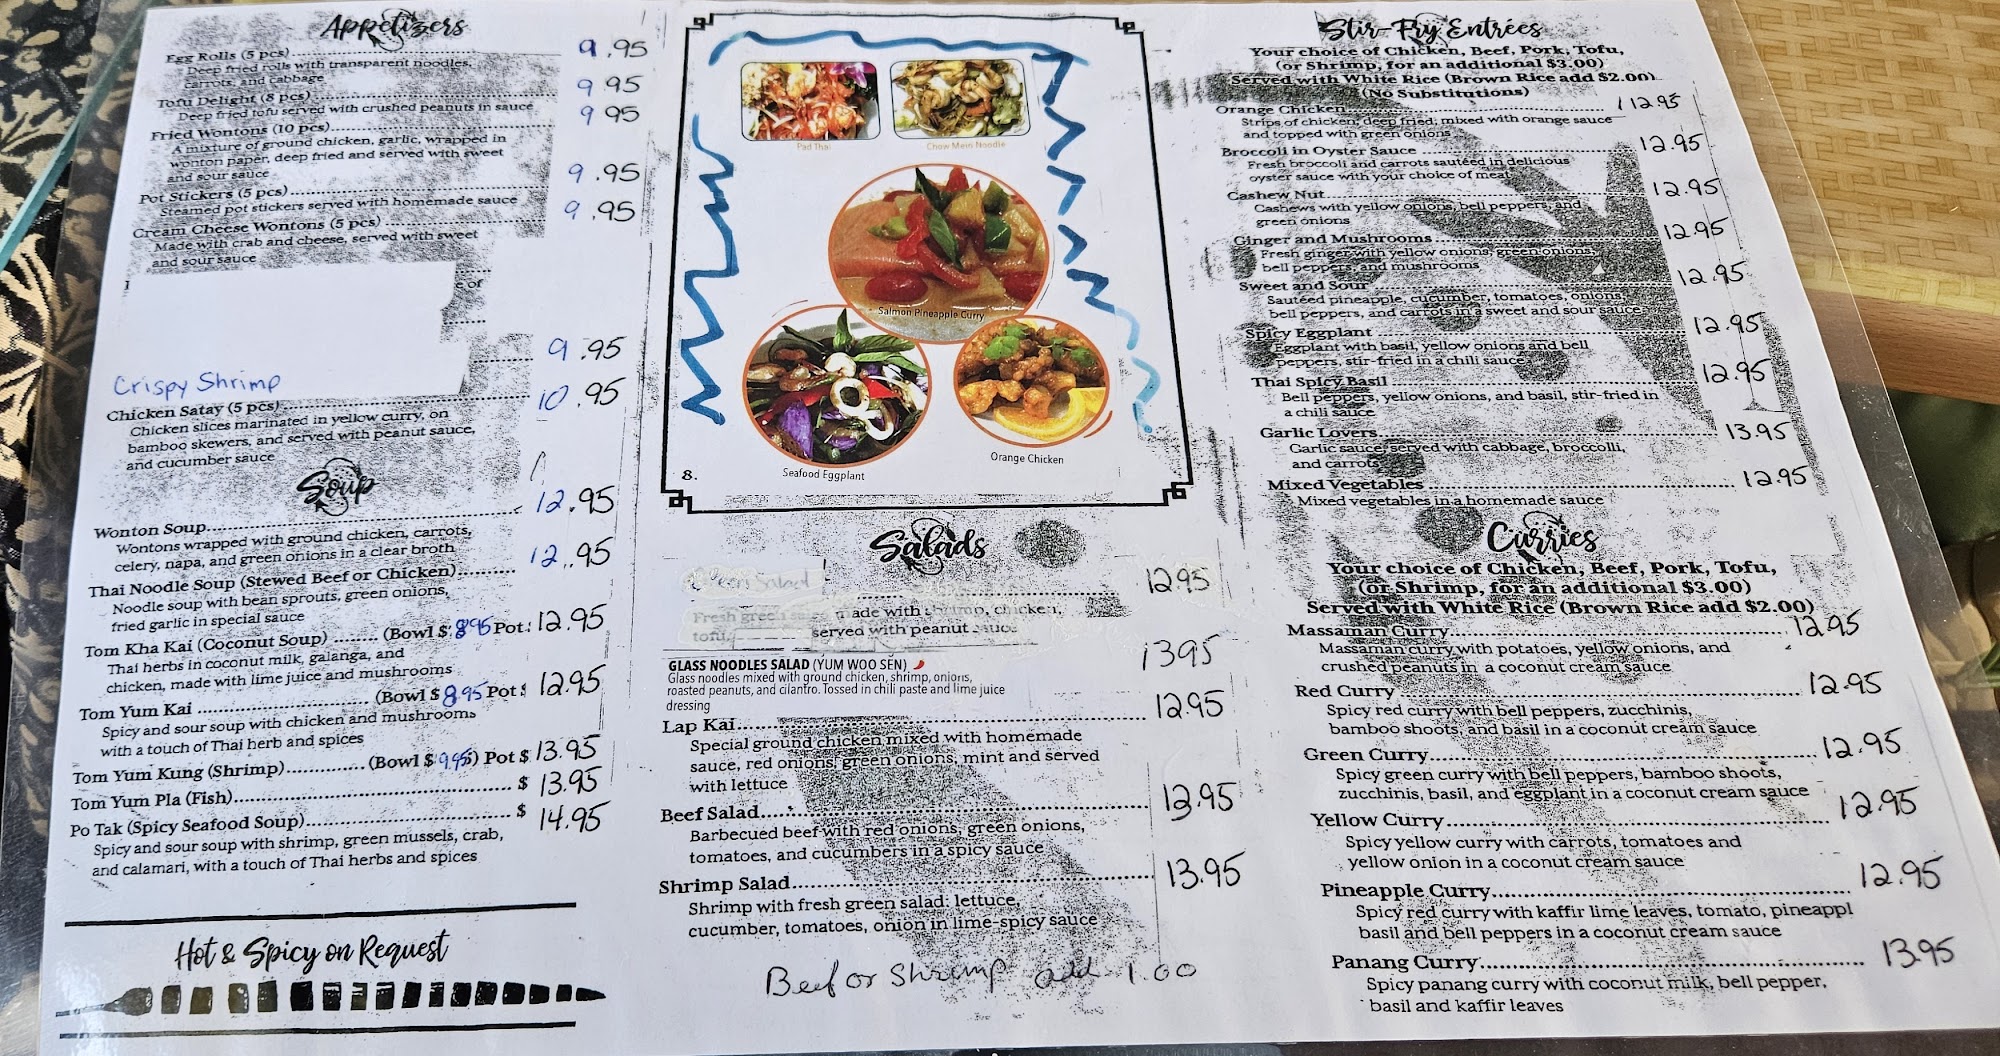 Appetizers
Egg Rolls (5 pcs) 9.95
Deep fried rolls with transparent noodles,
carrots, and cabbage
Tofu Delight (8 pcs) 9 95
Deep fried tofu served with crushed peanuts in sauce
Fried Wontons (10 pcs) 9 95
A mixture of ground chicken, garlic, wrapped in
wonton paper, deep fried and served with sweet
and sour sauce
Pot Stickers (5 pcs) 9.95
Steamed pot stickers served with homemade sauce
Cream Cheese Wontons (5 pcs) 9.95
Made with crab and cheese, served with sweet
and sour sauce
e of
Crispy Shrimp 9.95
Chicken Satay (5 pcs) 10.95
Chicken slices marinated in yellow curry, on
bamboo skewers, and served with peanut sauce,
and cucumber sauce
Soup
Wonton Soup 12.95
Wontons wrapped with ground chicken, carrots,
celery, napa, and green onions in a clear broth
Thai Noodle Soup (Stewed Beef or Chicken) 12.95
Noodle soup with bean sprouts, green onions,
fried garlic in special sauce
Tom Kha Kai (Coconut Soup) (Bowl $ 8.95 Pot: 12.95
Thai herbs in coconut milk, galanga, and
chicken, made with lime juice and mushrooms
Tom Yum Kai (Bowl $ 8.95 Pot $ 12.95
Spicy and sour soup with chicken and mushrooms
with a touch of Thai herb and spices
Tom Yum Kung (Shrimp) (Bowl $ 9.95) Pot $ 13.95
Tom Yum Pla (Fish) $ 13.95
Po Tak (Spicy Seafood Soup) $ 14.95
Spicy and sour soup with shrimp, green mussels, crab,
and calamari, with a touch of Thai herbs and spices
Hot & Spicy on Request
Pad Thai
Chow Mein Noodle
Salmon Pineapple Curry
Seafood Eggplant
Orange Chicken
8.
Salads
Green Salad 12.95
Fresh green made with shrimp, chicken,
tofu, served with peanut sauce
GLASS NOODLES SALAD (YUM WOO SEN) 1395
Glass noodles mixed with ground chicken, shrimp, onions,
roasted peanuts, and cilantro. Tossed in chili paste and lime juice
dressing
Lap Kai 12.95
Special ground chicken mixed with homemade
sauce, red onions, green onions, mint and served
with lettuce
Beef Salad 13.95
Barbecued beef with red onions, green onions,
tomatoes, and cucumbers in a spicy sauce
Shrimp Salad 13.95
Shrimp with fresh green salad: lettuce,
cucumber, tomatoes, onion in lime-spicy sauce
Beef or Shrimp add 1.00
Stir-Fry Entrées
Your choice of Chicken, Beef, Pork, Tofu,
(or Shrimp, for an additional $3.00)
Served with White Rice (Brown Rice add $2.00)
(No Substitutions)
Orange Chicken 12.95
Strips of chicken, deep fried, mixed with orange sauce
and topped with green onions
Broccoli in Oyster Sauce 12.95
Fresh broccoli and carrots sautéed in delicious
oyster sauce with your choice of meat
Cashew Nut 12.95
Cashews with yellow onions, bell peppers, and
green onions
Ginger and Mushrooms 12.95
Fresh ginger with yellow onions, green onions,
bell peppers, and mushrooms
Sweet and Sour 12.95
Sautéed pineapple, cucumber, tomatoes, onions,
bell peppers, and carrots in a sweet and sour sauce
Spicy Eggplant 12.95
Eggplant with basil, yellow onions and bell
peppers, stir-fried in a chili sauce
Thai Spicy Basil 12.95
Bell peppers, yellow onions, and basil, stir-fried in
a chili sauce
Garlic Lovers 13.95
Garlic sauce, served with cabbage, broccolli,
and carrots
Mixed Vegetables 12.95
Mixed vegetables in a homemade sauce
Curries
Your choice of Chicken, Beef, Pork, Tofu,
(or Shrimp, for an additional $3.00)
Served with White Rice (Brown Rice add $2.00)
Massaman Curry 12.95
Massaman curry with potatoes, yellow onions, and
crushed peanuts in a coconut cream sauce
Red Curry 12.95
Spicy red curry with bell peppers, zucchinis,
bamboo shoots, and basil in a coconut cream sauce
Green Curry 12.95
Spicy green curry with bell peppers, bamboo shoots,
zucchinis, basil, and eggplant in a coconut cream sauce
Yellow Curry 12.95
Spicy yellow curry with carrots, tomatoes and
yellow onion in a coconut cream sauce
Pineapple Curry 12.95
Spicy red curry with kaffir lime leaves, tomato, pineappl
basil and bell peppers in a coconut cream sauce
Panang Curry 13.95
Spicy panang curry with coconut milk, bell pepper,
basil and kaffir leaves